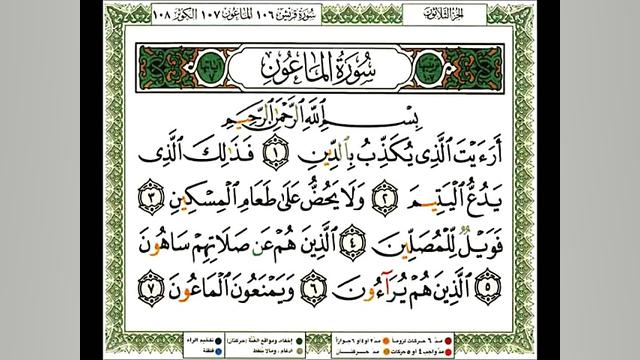 سورة قريش ١٠٦ الماعون ١٠٧ الكوثر ١٠٨
الجزء الثلاثون
سُورَةُ المَاعُونِ
بِسْمِ اللَّهِ الرَّحْمَٰنِ الرَّحِيمِ
أَرَءَيْتَ الَّذِي يُكَذِّبُ بِالدِّينِ ١ فَذَٰلِكَ الَّذِي
يَدُعُّ الْيَتِيمَ ٢ وَلَا يَحُضُّ عَلَىٰ طَعَامِ الْمِسْكِينِ ٣
فَوَيْلٌ لِّلْمُصَلِّينَ ٤ الَّذِينَ هُمْ عَن صَلَاتِهِمْ سَاهُونَ
٥ الَّذِينَ هُمْ يُرَاءُونَ ٦ وَيَمْنَعُونَ الْمَاعُونَ ٧
مدّ ٦ حركات لزوماً مدّ ٢ أو ٤ أو ٦ جوازاً إخفاء، ومواقع الغنّة (حركتان) تفخيم الراء
مدّ واجب ٤ أو ٥ حركات مدّ حركتان ادغام، وما لا يلفظ قلقلة